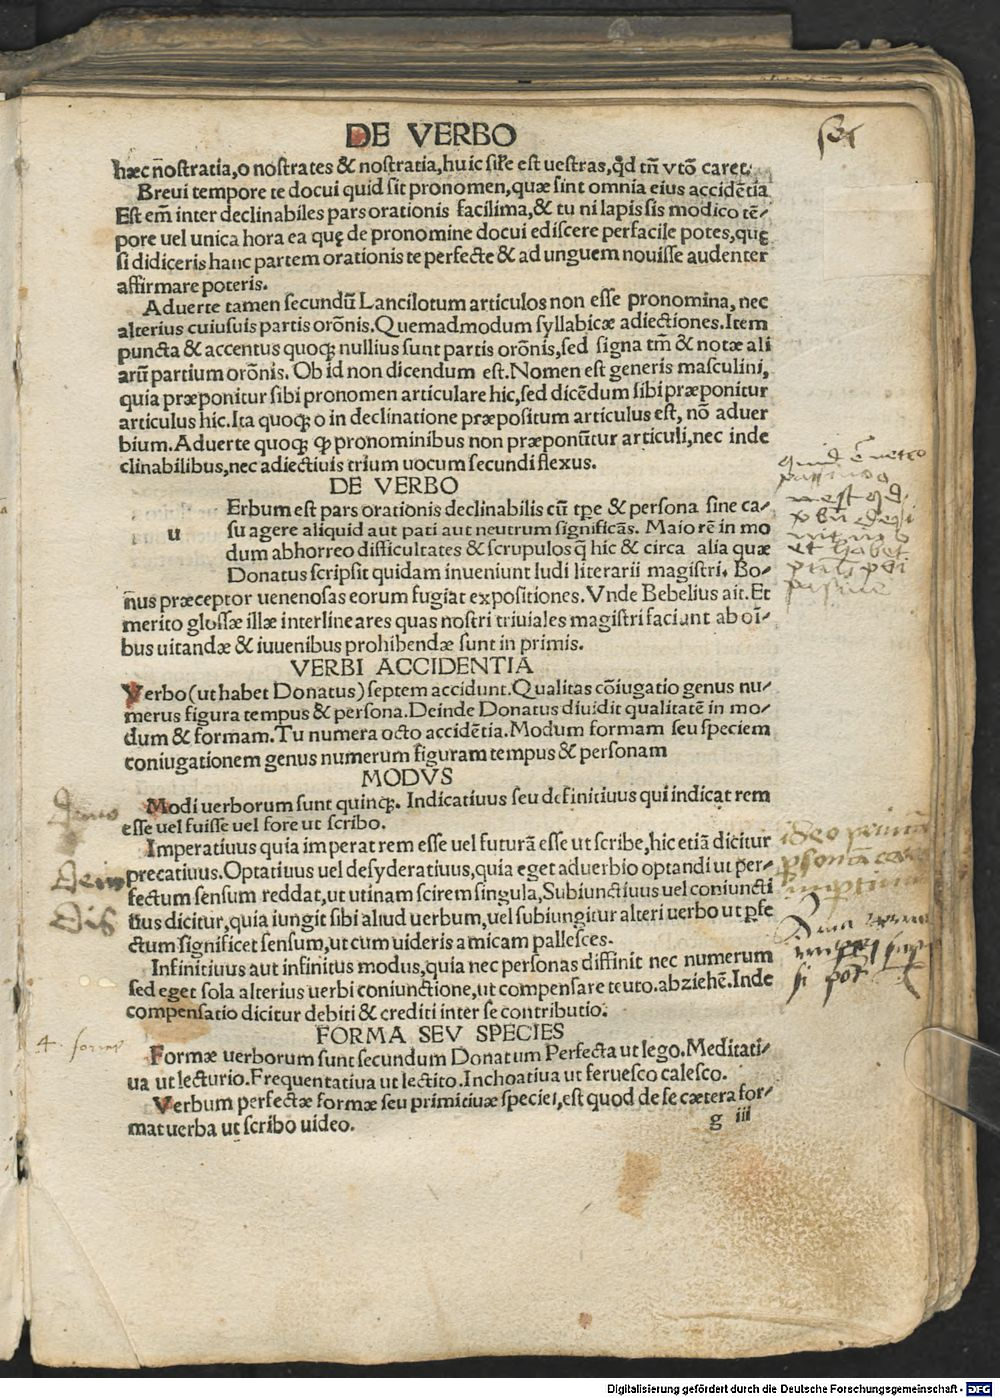 DE VERBO
hæc n̄ostratia,o nostrates & nostratia,huic sił'e est uestras,q̇d tñ vtō caret.
Breui tempore te docui quid sit pronomen,quæ sint omnia eius accidētia
Est em̄ inter declinabiles pars orationis facilima,& tu ni lapis sis modico tē/
pore uel unica hora ea quę de pronomine docui ediscere perfacile potes,quę
si didiceris hanc partem orationis te perfecte & ad unguem nouisse audenter
affirmare poteris.
Aduerte tamen secundū Lancilotum articulos non esse pronomina, nec
alterius cuiusuis partis orōnis.Quemadmodum syllabicæ adiectiones.Item
puncta & accentus quoqꝫ nullius sunt partis orōnis,sed signa tm̄ & notæ ali
arū partium orōnis. Ob id non dicendum est.Nomen est generis masculini,
quia præponitur sibi pronomen articulare hic,sed dicēdum sibi præponitur
articulus hic.Ita quoqꝫ o in declinatione præpositum articulus est, nō aduer
bium.Aduerte quoqꝫ ꝙ pronominibus non præponūtur articuli,nec inde
clinabilibus,nec adiectiuis trium uocum secundi flexus.
DE VERBO
u Erbum est pars orationis declinabilis cū tpe & persona sine ca/
su agere aliquid aut pati aut neutrum significās. Maiorē in mo
dum abhorreo difficultates & scrupulos q̄ hic & circa alia quæ
Donatus scripsit quidam inueniunt ludi literarii magistri. Bo/
n̄us præceptor uenenosas eorum fugiat expositiones.Vnde Bebelius ait.Et
merito glossæ illæ interlineares quas nostri triuiales magistri faciunt ab oī/
bus uitandæ & iuuenibus prohibendæ sunt in primis.
VERBI ACCIDENTIA
Verbo(ut habet Donatus)septem accidunt.Qualitas cōiugatio genus nu/
merus figura tempus & persona.Deinde Donatus diuidit qualitatē in mo/
dum & formam.Tu numera octo accidētia.Modum formam seu speciem
coniugationem genus numerum figuram tempus & personam
MODVS
Modi uerborum sunt quinqꝫ. Indicatiuus seu definitiuus qui indicat rem
esse uel fuisse uel fore ut scribo.
Imperatiuus quia imperat rem esse uel futurā esse ut scribe,hic etiā dicitur
precatiuus.Optatiuus uel desyderatiuus,quia eget aduerbio optandi ut per/
fectum sensum reddat,ut utinam scirem singula,Subiunctiuus uel coniuncti
ūus dicitur,quia iungit sibi aliud uerbum,uel subiungitur alteri uerbo ut ꝑfe
ctum significet sensum,ut cum uideris amicam pallesces.
Infinitiuus aut infinitus modus,quia nec personas diffinit nec numerum
sed eget sola alterius uerbi coniunctione,ut compensare te uto.abziehē.Inde
compensatio dicitur debiti & crediti inter se contributio.
FORMA SEV SPECIES
4 forme
Formæ uerborum sunt secundum Donatum Perfecta ut lego.Meditati/
ua ut lecturio.Frequentatiua ut lectito.Inchoatiua ut feruesco calesco.
Verbum perfectæ formæ seu primitiuæ speciei,est quod de se cætera for/
mat uerba ut scribo uideo.
g iii
Digitalisierung gefördert durch die Deutsche Forschungsgemeinschaft - DFG